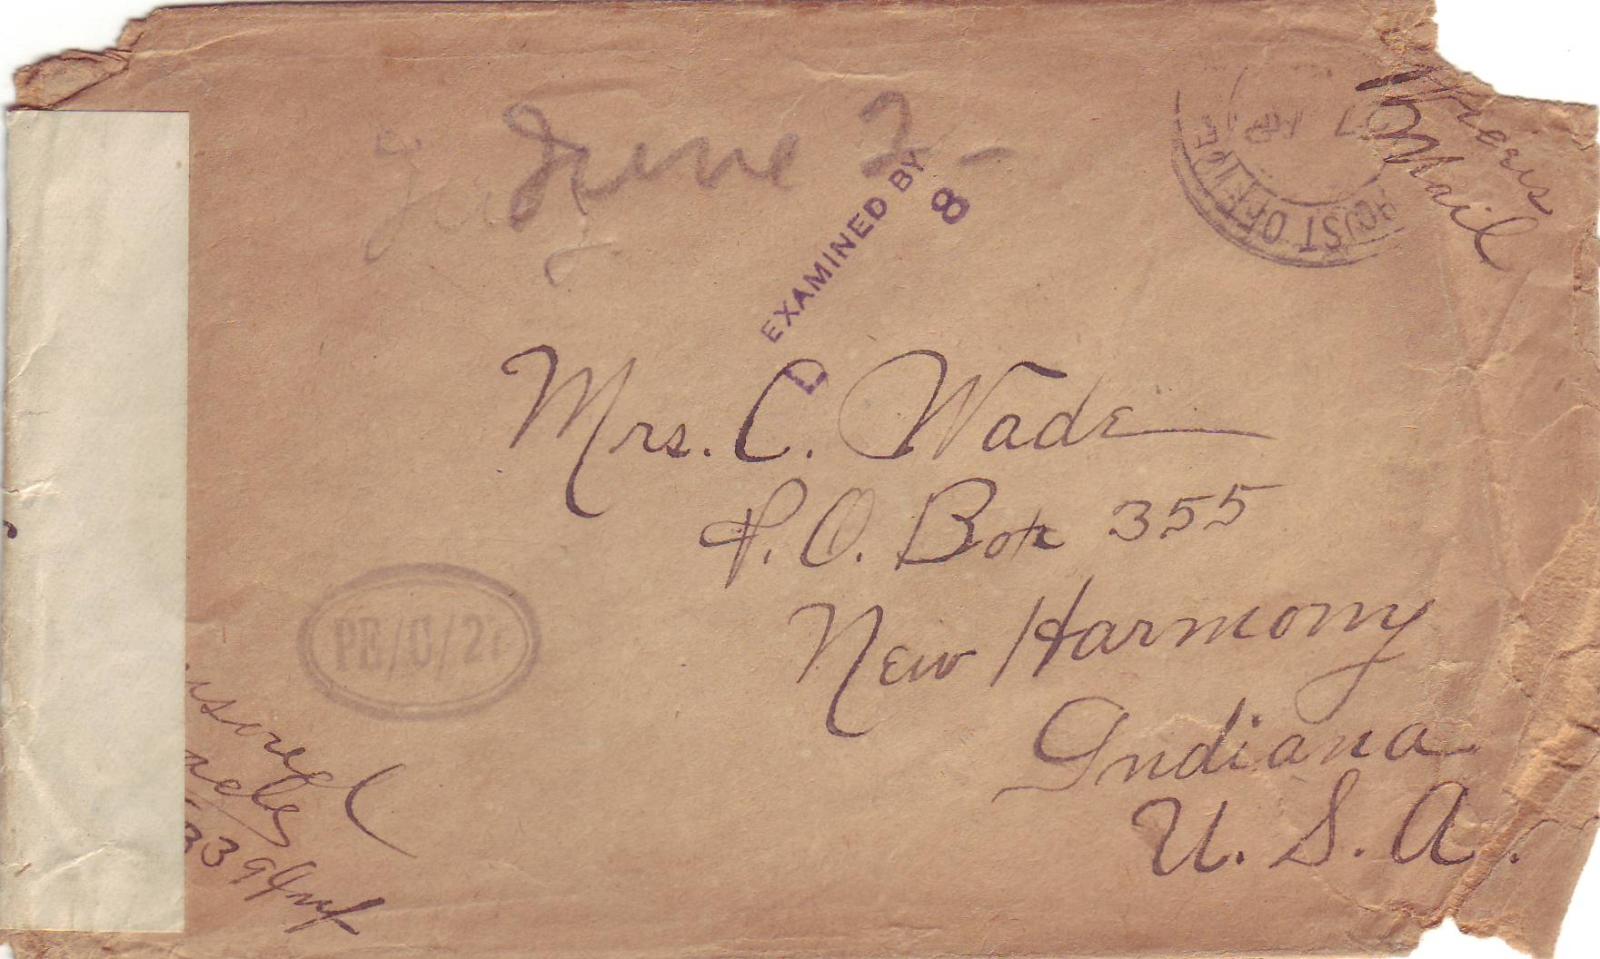 June 2-
EXAMINED BY
8
POST OFFICE
Mail
Mrs. C. Wade
P.O. Box 355
New Harmony
Indiana
U.S.A.
PE/C/2
339 Inf